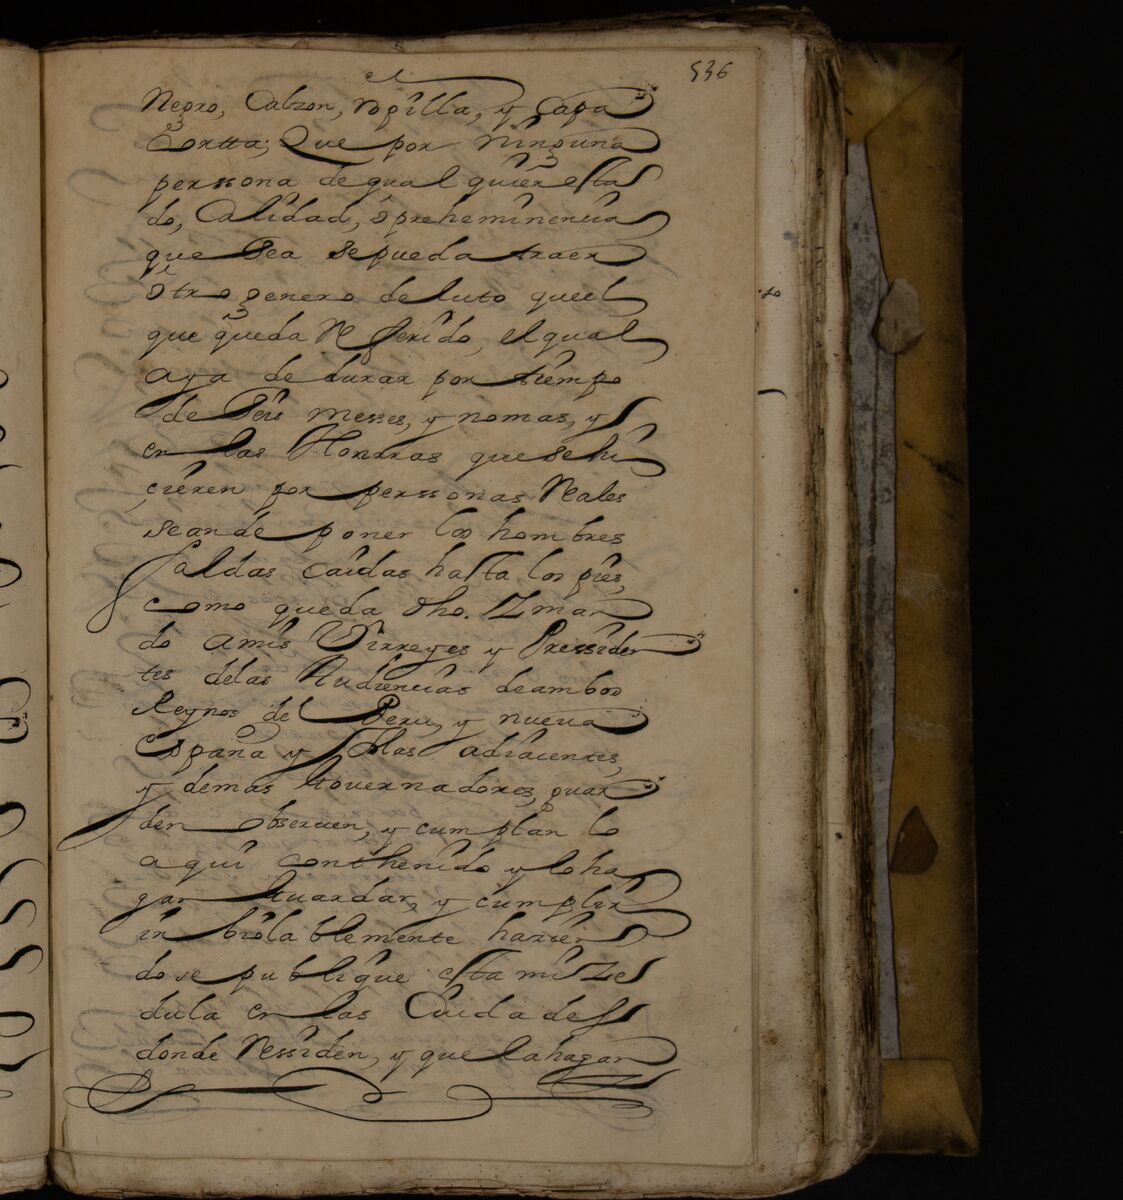 536
Negro, Calzon, ropilla, y Capa
Cortta; Que por ninguna
perssona de qual quier esta
do, Calidad, ô preheminencia
que Sea sepueda traer
ôtro genero de luto queel
que queda Referido, el qual
aya de durar por tiempo
de Seis messes, y nomas, y
en las Honrras que se hi
çieren, por perssonas Reales
sean de poner los hombres
faldas caidas hasta los pies,
como queda dho. Y man
do amis Virreyes y Pressiden
tes delas Audiencias deambos
Reynos del Peru, y nueua
España y Islas adiacentes,
y demas Gouernadores, guar
den obseruen, y cumplan lo
aqui conthenido y lo ha
gan Guardar, y cumplir
in biolablemente hacien
dose publique esta mi Ze
dula en las Ciudades
donde Ressiden, y que la hagan